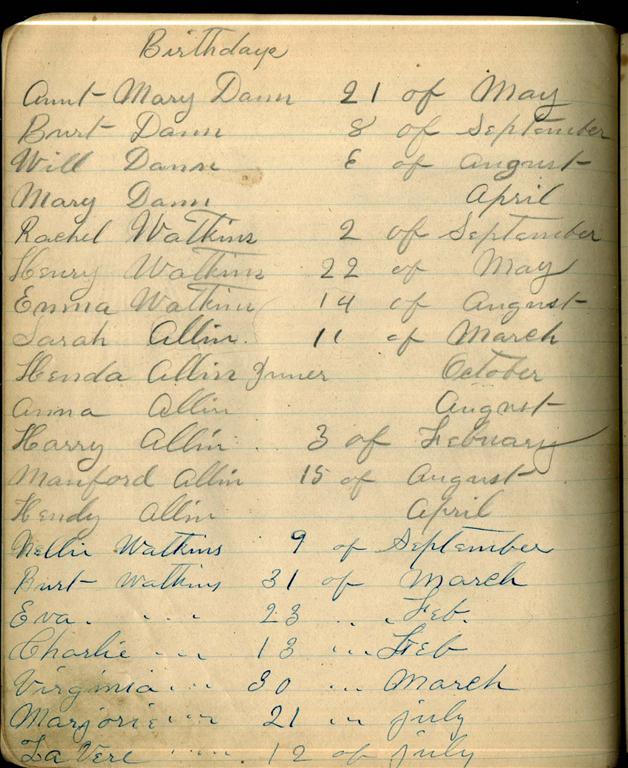 Birthdays
Aunt Mary Dann 21 of May
Burt Dann 8 of September
Will Dann 6 of August
Mary Dann April
Rachel Watkins 2 of September
Henry Watkins 22 of May
Emma Watkins 14 of August
Sarah Allin. 11 of March
Henda Allin Juner October
Anna Allin August
Harry Allin . 3 of Febuary
Manford Allin 15 of August
Hendy Allin April
Nellie Watkins 9 of September
Burt Watkins 31 of March
Eva . . . . 23 . . . Feb.
Charlie . . . 13 . . . Feb
Virginia . . . 30 . . . March
Marjorie " " 21 " " july
LaVere " " 12 of july